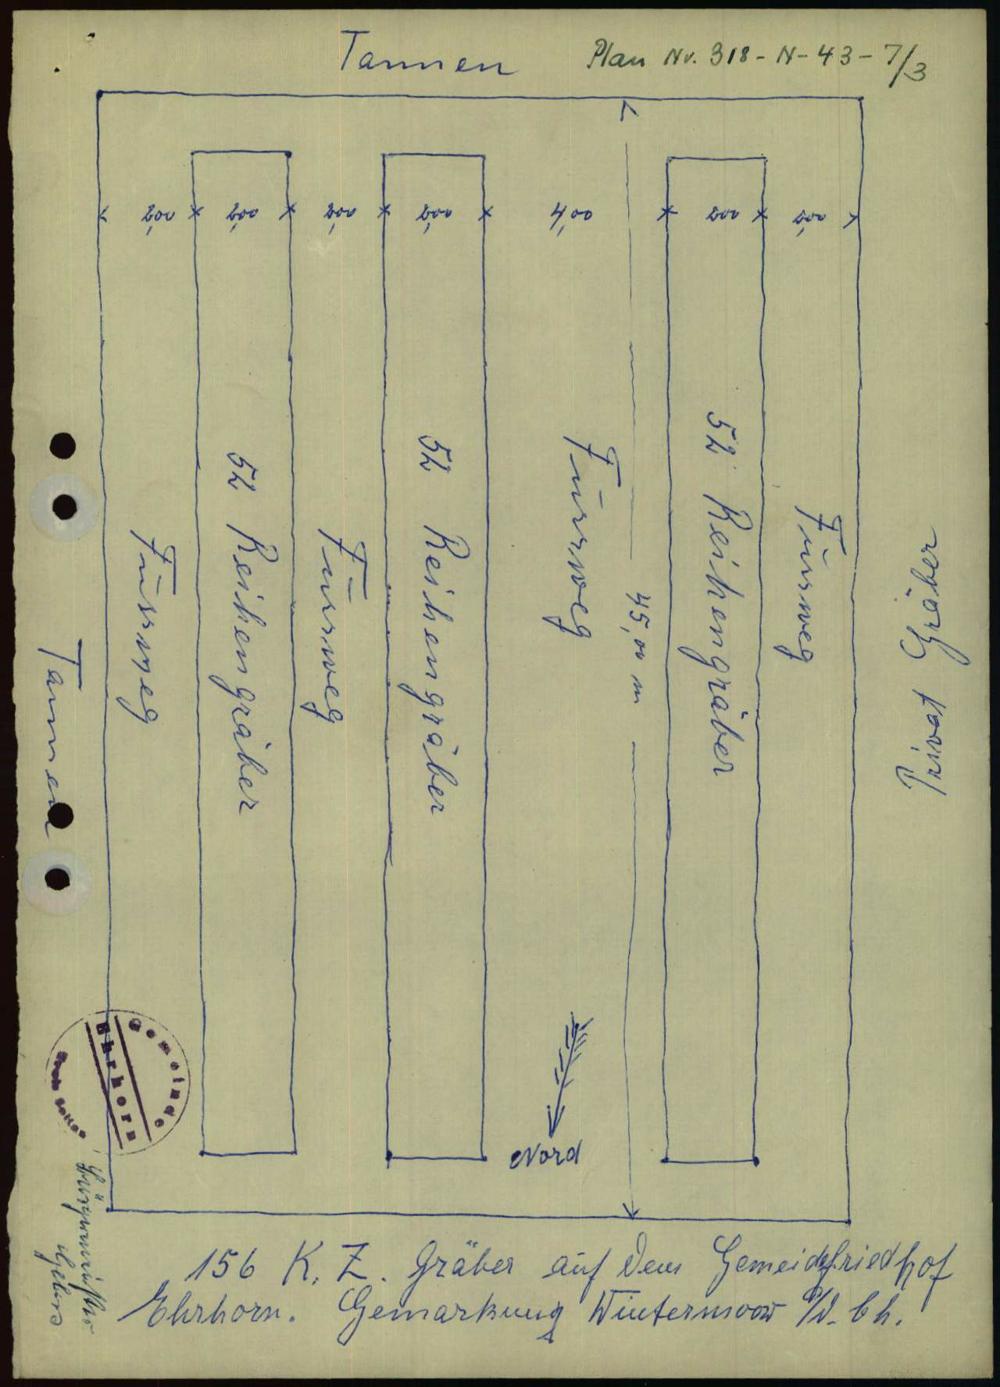 Tannen
Plan Nr. 318-N-43-7/3
2,00 2,00 2,00 2,00 4,00 2,00 2,00
Fussweg
52 Reihengräber
Fussweg
52 Reihengräber
Fussweg
45,00 m
52 Reihengräber
Fussweg
Privat Gräber
Tannen
Nord
Gemeinde
Ehrhorn
Kreis Soltau
Bürgermeister
156 K. Z. Gräber auf dem Gemeidefriedhof
Ehrhorn. Gemarkung Wintermoor